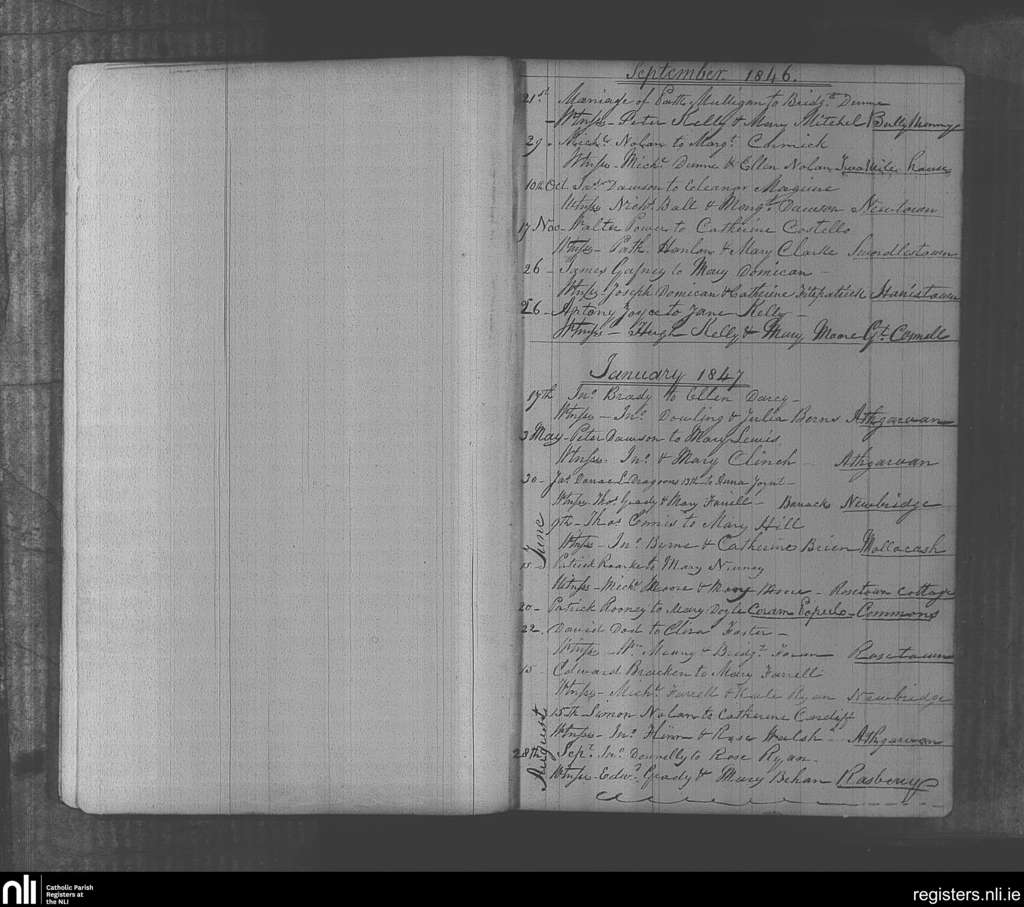 September 1846.
21st Marriage of Patk Mulligan to Bridgt Dunne
Witness - Peter Kelly & Mary Mitchel Ballymany
29 - Michl Nolan to Margt Cormick
Witness - Michl Dunne & Ellen Nolan Two Mile house
10th Oct Jas Dawson to Eleanor Maguire
Witness Nichs Ball & Margt Dawson Newtown
17 Nov - Walter Power to Catherine Costello
Witness - Path. Hanlon & Mary Clarke Swordlestown
26 - James Gafney to Mary Domican -
Witness Joseph Domican & Catherine Fitzpatrick Harristown
26 - Antony Joyce to Jane Kelly -
Witness - Hugh Kelly & Mary Moore Gt. Connell
January 1847
17th Jno Brady to Ellen Darcy -
Witness - Jno Dowling & Julia Berns Athgarvan
3 May - Peter Dawson to Mary Lewis
Witness. Jno & Mary Clinch - Athgarvan
30 - Jas L. Dragoons 13th to Anna Joynt -
Witness Thos Grady & Mary Farrell - Barracks Newbridge
June
9th - Thos Ennis to Mary Hill
Witness - Jno Byrne & Catherine Brien Mollacash
15 - Patrick Roarke to Mary
Witness - Michl Moore & Mary - Rosetown Cottage
20 - Patrick Rooney to Mary Doyle Coram Populo - Commons
22. David Dod to Clera Foster -
Witness - Wm & Bridgt Rosetown
15 Edward Bracken to Mary Farrell
Witness - Michl Farrell & Kate Ryan Newbridge
August
15th Simon Nolan to Catherine Cardiff
Witness - Jno & Rose Walsh - Athgarvan
28th Sept. Jno Donnelly to Rose Ryan.
Witness - Edwd Grady & Mary Behan Rasberry
nli
Catholic Parish
Registers at
the NLI
registers.nli.ie